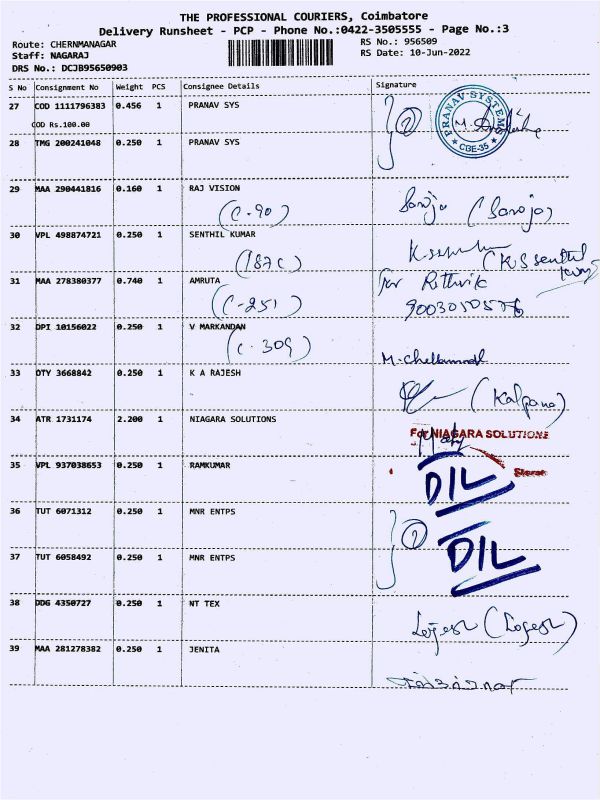 THE PROFESSIONAL COURIERS, Coimbatore
Delivery Runsheet - PCP - Phone No.:0422-3505555 - Page No.:3
Route: CHERNMANAGAR
RS No.: 956509
Staff: NAGARAJ
RS Date: 10-Jun-2022
DRS No.: DCJB95650903
S No Consignment No Weight PCS Consignee Details Signature
27 COD 1111796383 0.456 1 PRANAV SYS
COD Rs.100.00
PRANAV-SYSTEMS
CBE-35
28 TMG 200241048 0.250 1 PRANAV SYS
29 MAA 290441816 0.160 1 RAJ VISION
(C-90) Saroja (Saroja)
30 VPL 498874721 0.250 1 SENTHIL KUMAR
(187C) (K.S Senthil
31 MAA 278380377 0.740 1 AMRUTA for Rithvik
(C-251)
32 DPI 10156022 0.250 1 V MARKANDAN
(C-309)
33 OTY 3668842 0.250 1 K A RAJESH
(Kalpana)
34 ATR 1731174 2.200 1 NIAGARA SOLUTIONS
For NIAGARA SOLUTIONS
35 VPL 937038653 0.250 1 RAMKUMAR
D/L
36 TUT 6071312 0.250 1 MNR ENTPS
37 TUT 6058492 0.250 1 MNR ENTPS
D/L
38 DDG 4350727 0.250 1 NT TEX
Logesh (Logesh)
39 MAA 281278382 0.250 1 JENITA